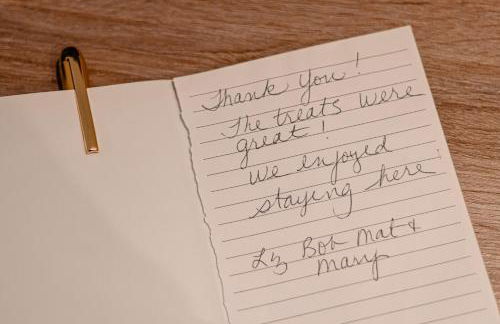 Thank You!
The treats were
great!
We enjoyed
staying here.
Liz Bob Mat &
Mary